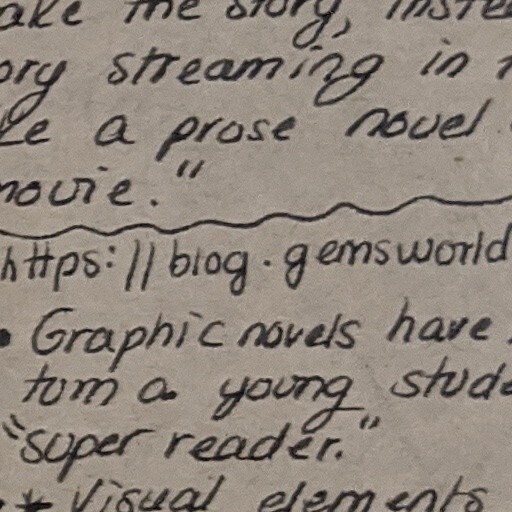 ake the story, inste
ory streaming in
ke a prose novel
movie."
https://blog.gemsworld
• Graphic novels have
tum a young stude
"super reader."
* Visual elements